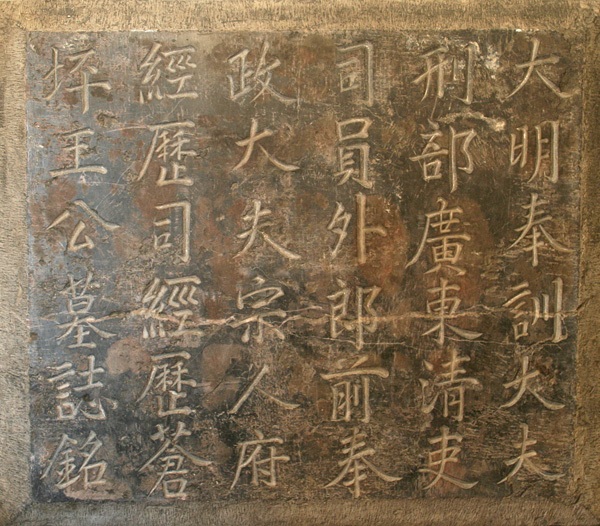 大明奉訓大夫
刑部廣東清吏
司員外郎前奉
政大夫宗人府
經歷司經歷蒼
坪王公墓誌銘